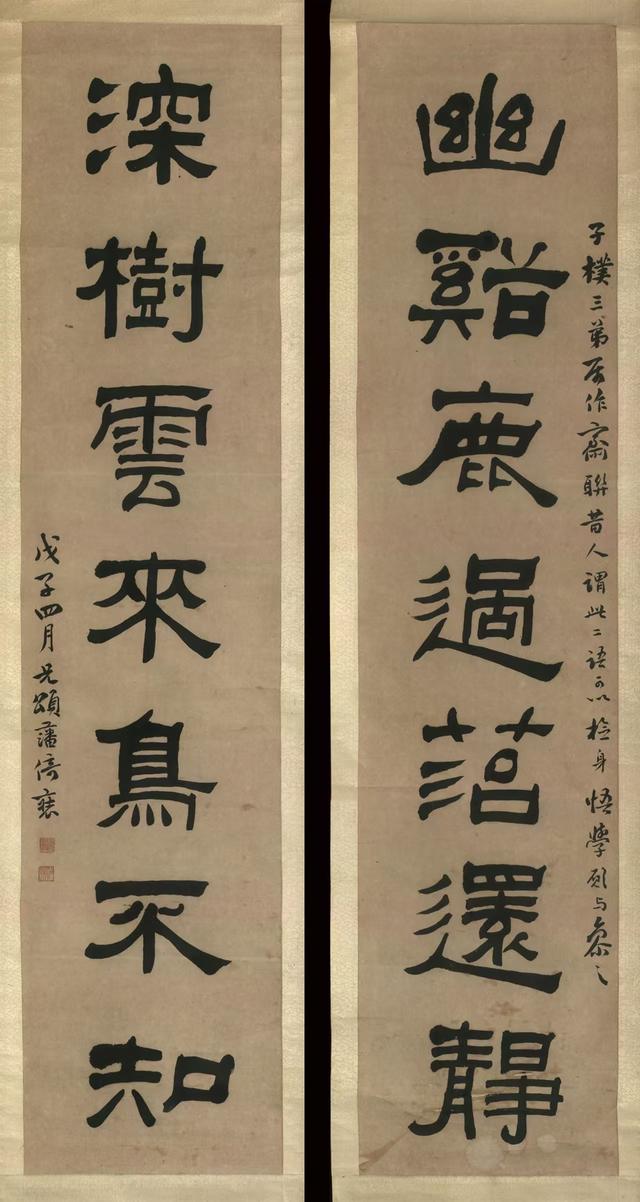 子樸三弟属作齋聯昔人謂此二語可以檢身悟學願与參之
幽谿鹿過菭還靜
深樹雲來鳥不知
戊子四月兄頌藩倚裝